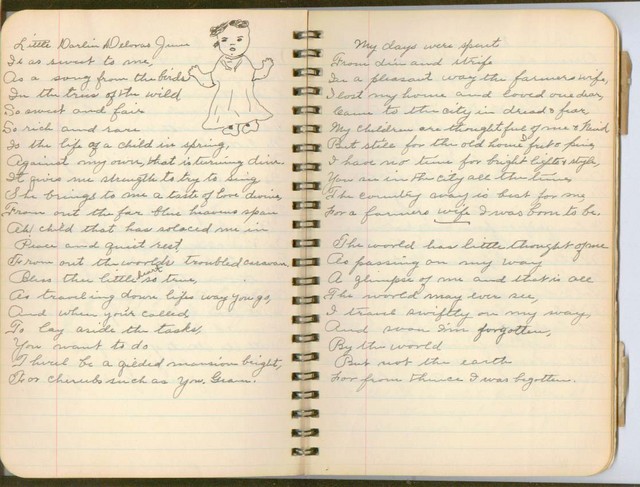 Little Darlin Delores June
Is as sweet to me,
As a song from the birds
In the trees of the wild
So sweet and fair
So rich and rare
Is the life of a child in spring,
Against my own, that is turning
It gives me strength to try to sing
She brings to me a taste of love divine,
From out the far blue heavens span
Ah! child that has solaced me in
Peace and quiet rest
From out the worlds troubled caravan
Bless thee little heart so true,
As traveling down lifes way you go,
And when you'r called,
To lay aside the tasks,
You want to do
Theril be a gilded mansion bright,
For cherubs such as You.
My days were spent
From din and strife
In a pleasant way the farmers wife,
I lost my home and loved one dear,
Came to the city in dread & fear
My children are thoughtful of me & kind
But still for the old home I fret & pine
I have no time for bright lights & style,
You see in the city all the time
The country way is best for me,
For a farmers wife I was born to be.
The world has little thought of me
As passing on my way
A glimpse of me and that is all
The world may ever see,
I travel swiftly on my way,
And soon I'm forgotten,
By the world
But not the earth
For from thence I was begotten.